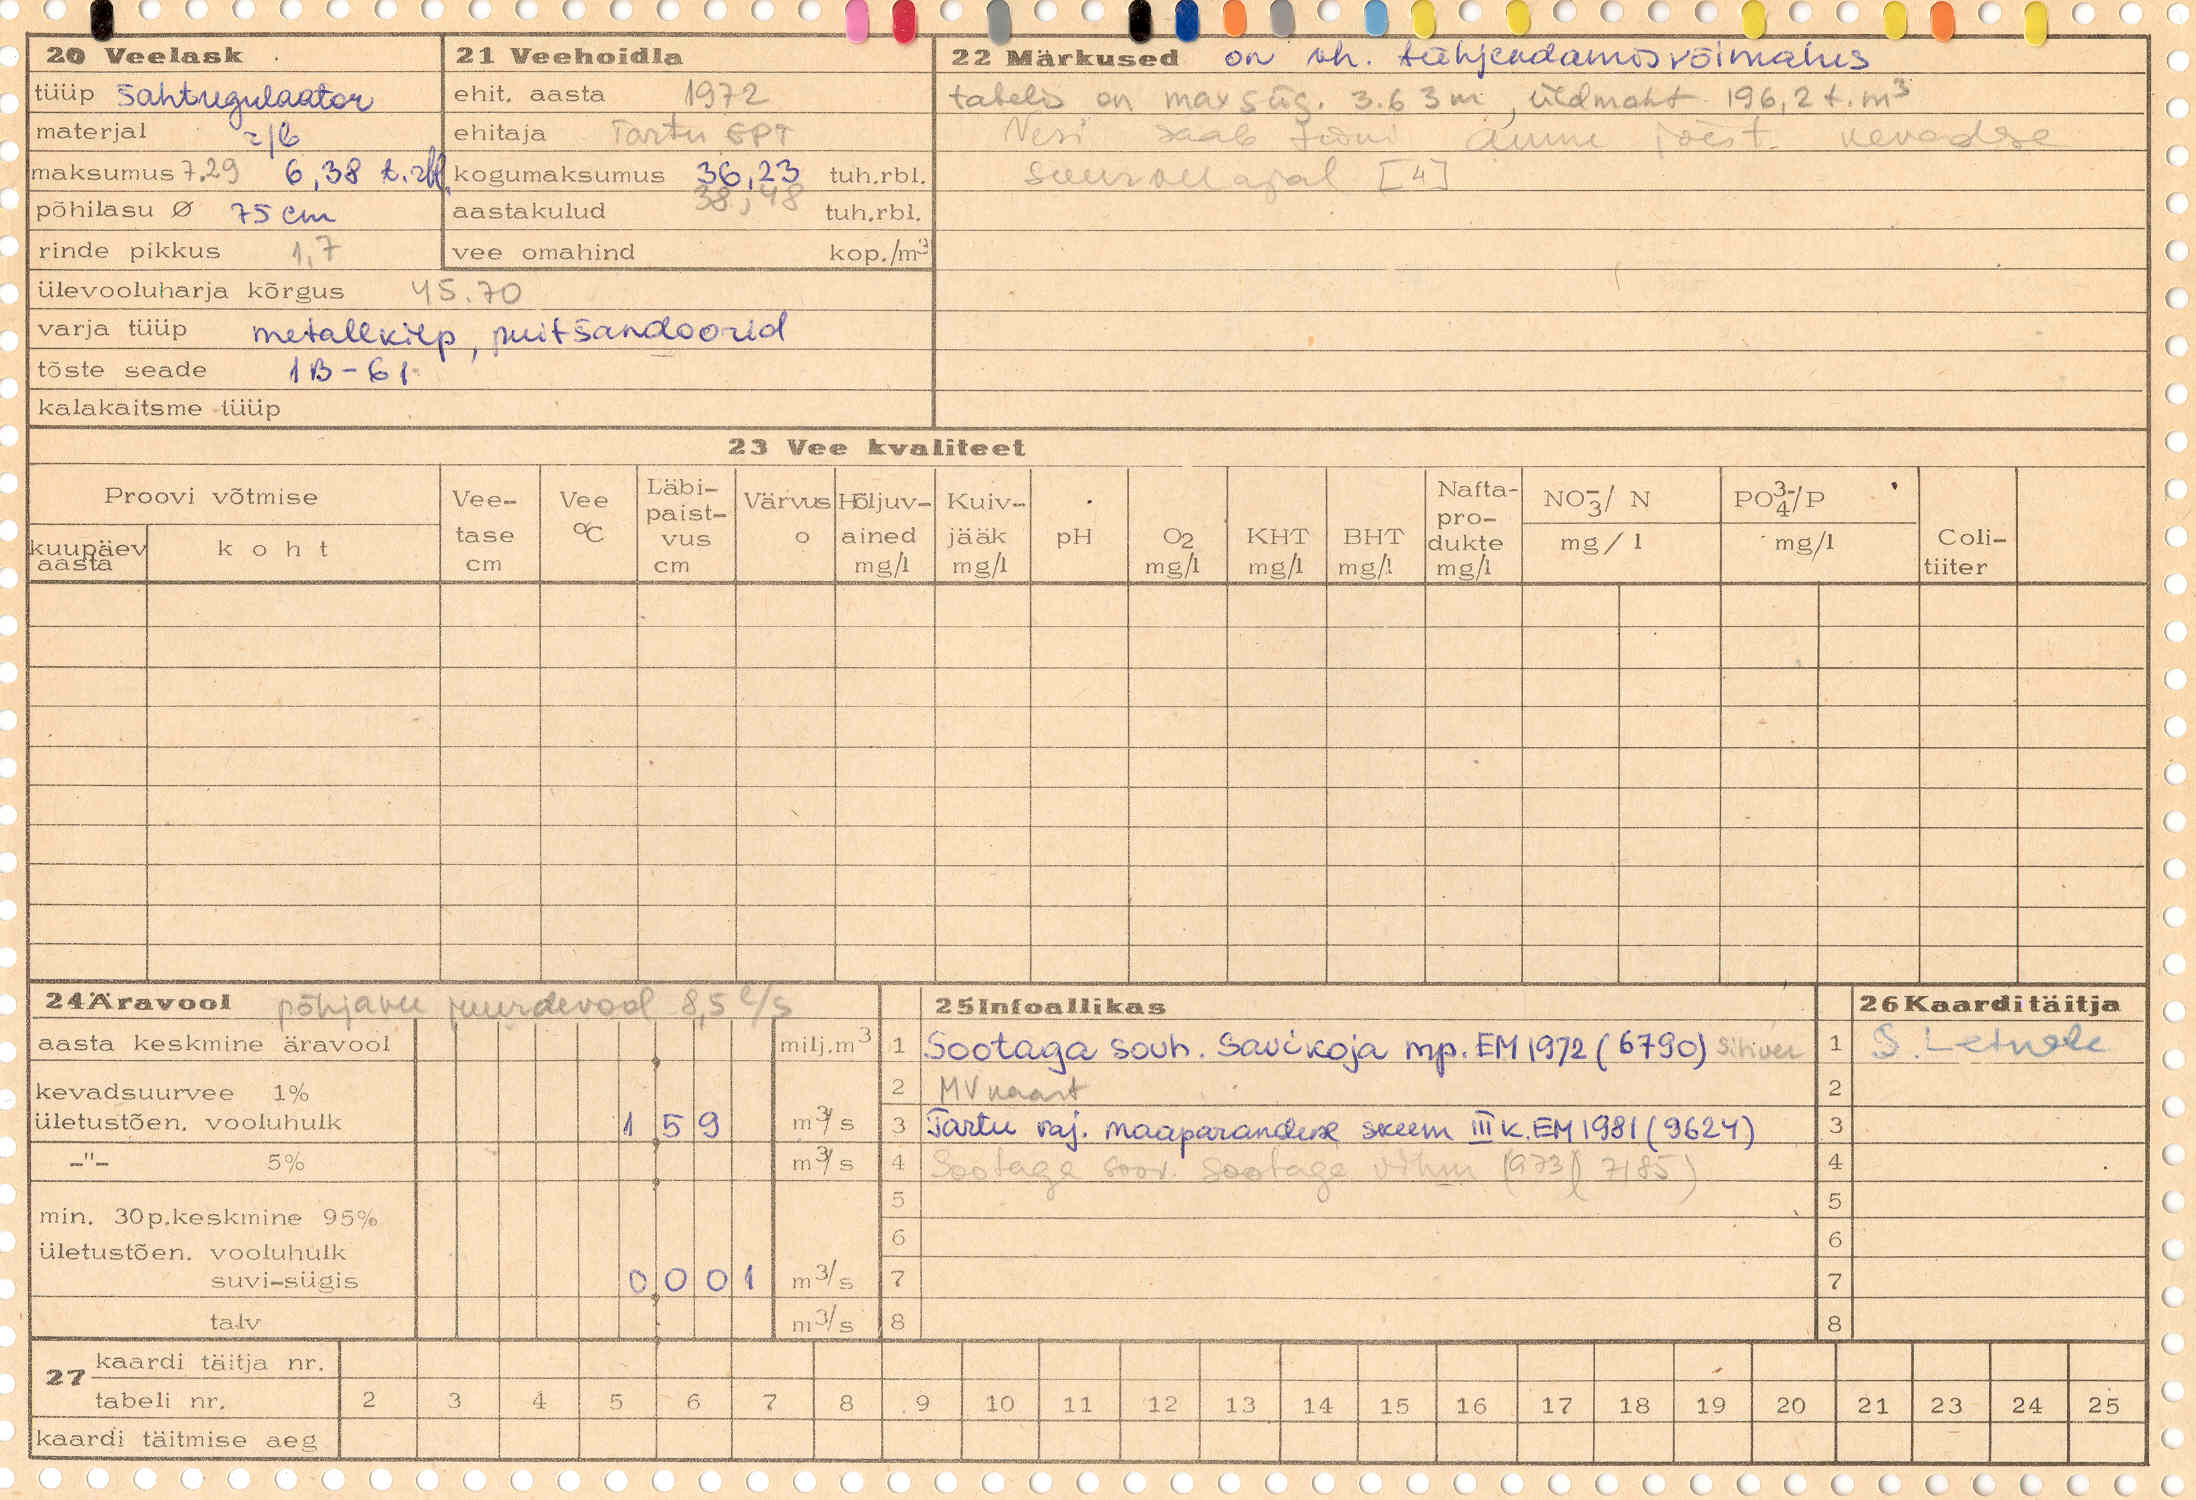 20 Veelask
tüüp šahtregulaator
materjal r/b
maksumus 7.29 6,38 t. rbl.
põhilasu Ø 75 cm
rinde pikkus 1,7
ülevooluharja kõrgus 45.70
varja tüüp metallkilp, puitšandoorid
tõste seade 1B-61
kalakaitsme tüüp
21 Veehoidla
ehit. aasta 1972
ehitaja Tartu EPT
kogumaksumus 36,23 tuh.rbl.
38,48
aastakulud tuh.rbl.
vee omahind kop./m³
22 Märkused on vh. tühjendamisvõimalus
tabelis on max süg. 3.63 m, üldmaht 196,2 t. m³
Vesi saab Amme jõest kevadise
suurvee ajal [4]
23 Vee kvaliteet
Proovi võtmise
kuupäev aasta
koht
Vee-tase cm
Vee °C
Läbi-paist-vus cm
Värvus o
Hõljuv-ained mg/l
Kuiv-jääk mg/l
pH
O2 mg/l
KHT mg/l
BHT mg/l
Nafta-pro-dukte mg/l
NO3-/ N mg/l
PO4 3-/P mg/l
Coli-tiiter
24 Äravool põhjavee juurdevool 8,5 l/s
aasta keskmine äravool milj.m³
kevadsuurvee 1%
ületustõen. vooluhulk 1,59 m³/s
-"- 5% m³/s
min. 30p.keskmine 95%
ületustõen. vooluhulk
suvi-sügis 0,001 m³/s
talv m³/s
25 Infoallikas
1 Sootaga sovh. Savikoja mp. EM 1972 (6790)
2 MV kaart
3 Tartu raj. maaparanduse skeem III k. EM 1981 (9624)
4 Sootaga sovh. Sootaga vihm 1973 (7185)
5
6
7
8
26 Kaarditäitja
1
2
3
4
5
6
7
8
27 kaardi täitja nr.
tabeli nr. 2 3 4 5 6 7 8 9 10 11 12 13 14 15 16 17 18 19 20 21 23 24 25
kaardi täitmise aeg